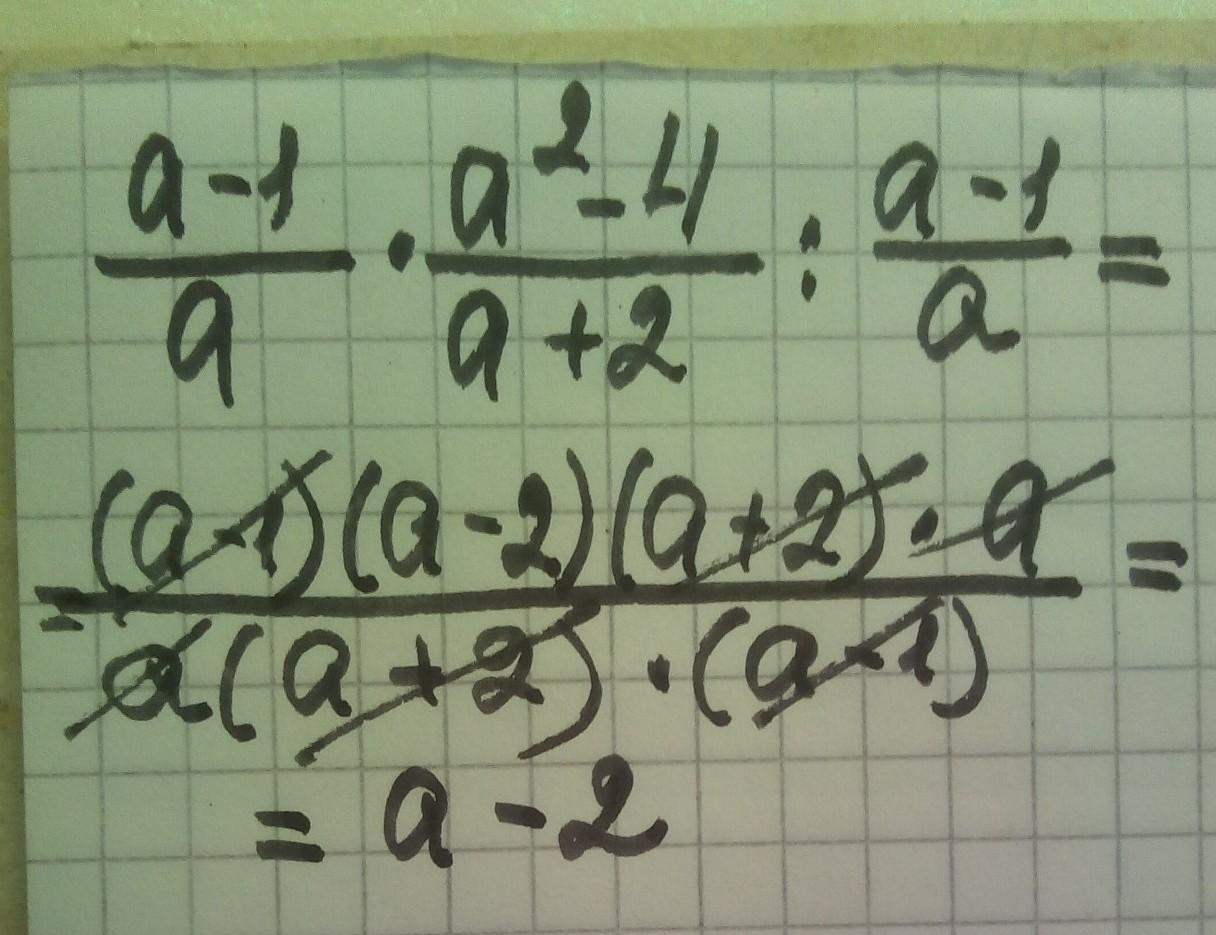 \frac{a-1}{a} \cdot \frac{a^2-4}{a+2} : \frac{a-1}{a} =
= \frac{(a-1)(a-2)(a+2) \cdot a}{a(a+2) \cdot (a-1)} =
= a-2